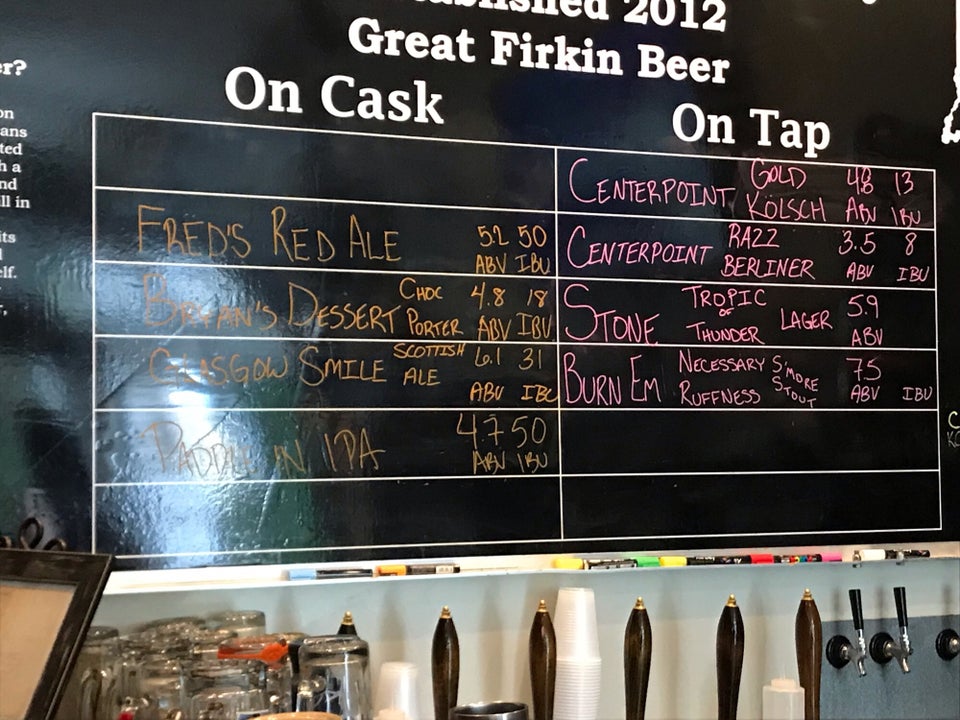 Established 2012
Great Firkin Beer
On Cask
FRED'S RED ALE 5.2 50
ABV IBU
BRYAN'S DESSERT CHOC PORTER 4.8 18
ABV IBU
GLASGOW SMILE SCOTTISH ALE 6.1 31
ABV IBU
PADDLE IN IPA 4.7 50
ABV IBU
On Tap
CENTERPOINT GOLD KÖLSCH 4.8 13
ABV IBU
CENTERPOINT RAZZ BERLINER 3.5 8
ABV IBU
STONE TROPIC OF THUNDER LAGER 5.9
ABV
BURN EM NECESSARY RUFFNESS S'MORE STOUT 7.5
ABV IBU